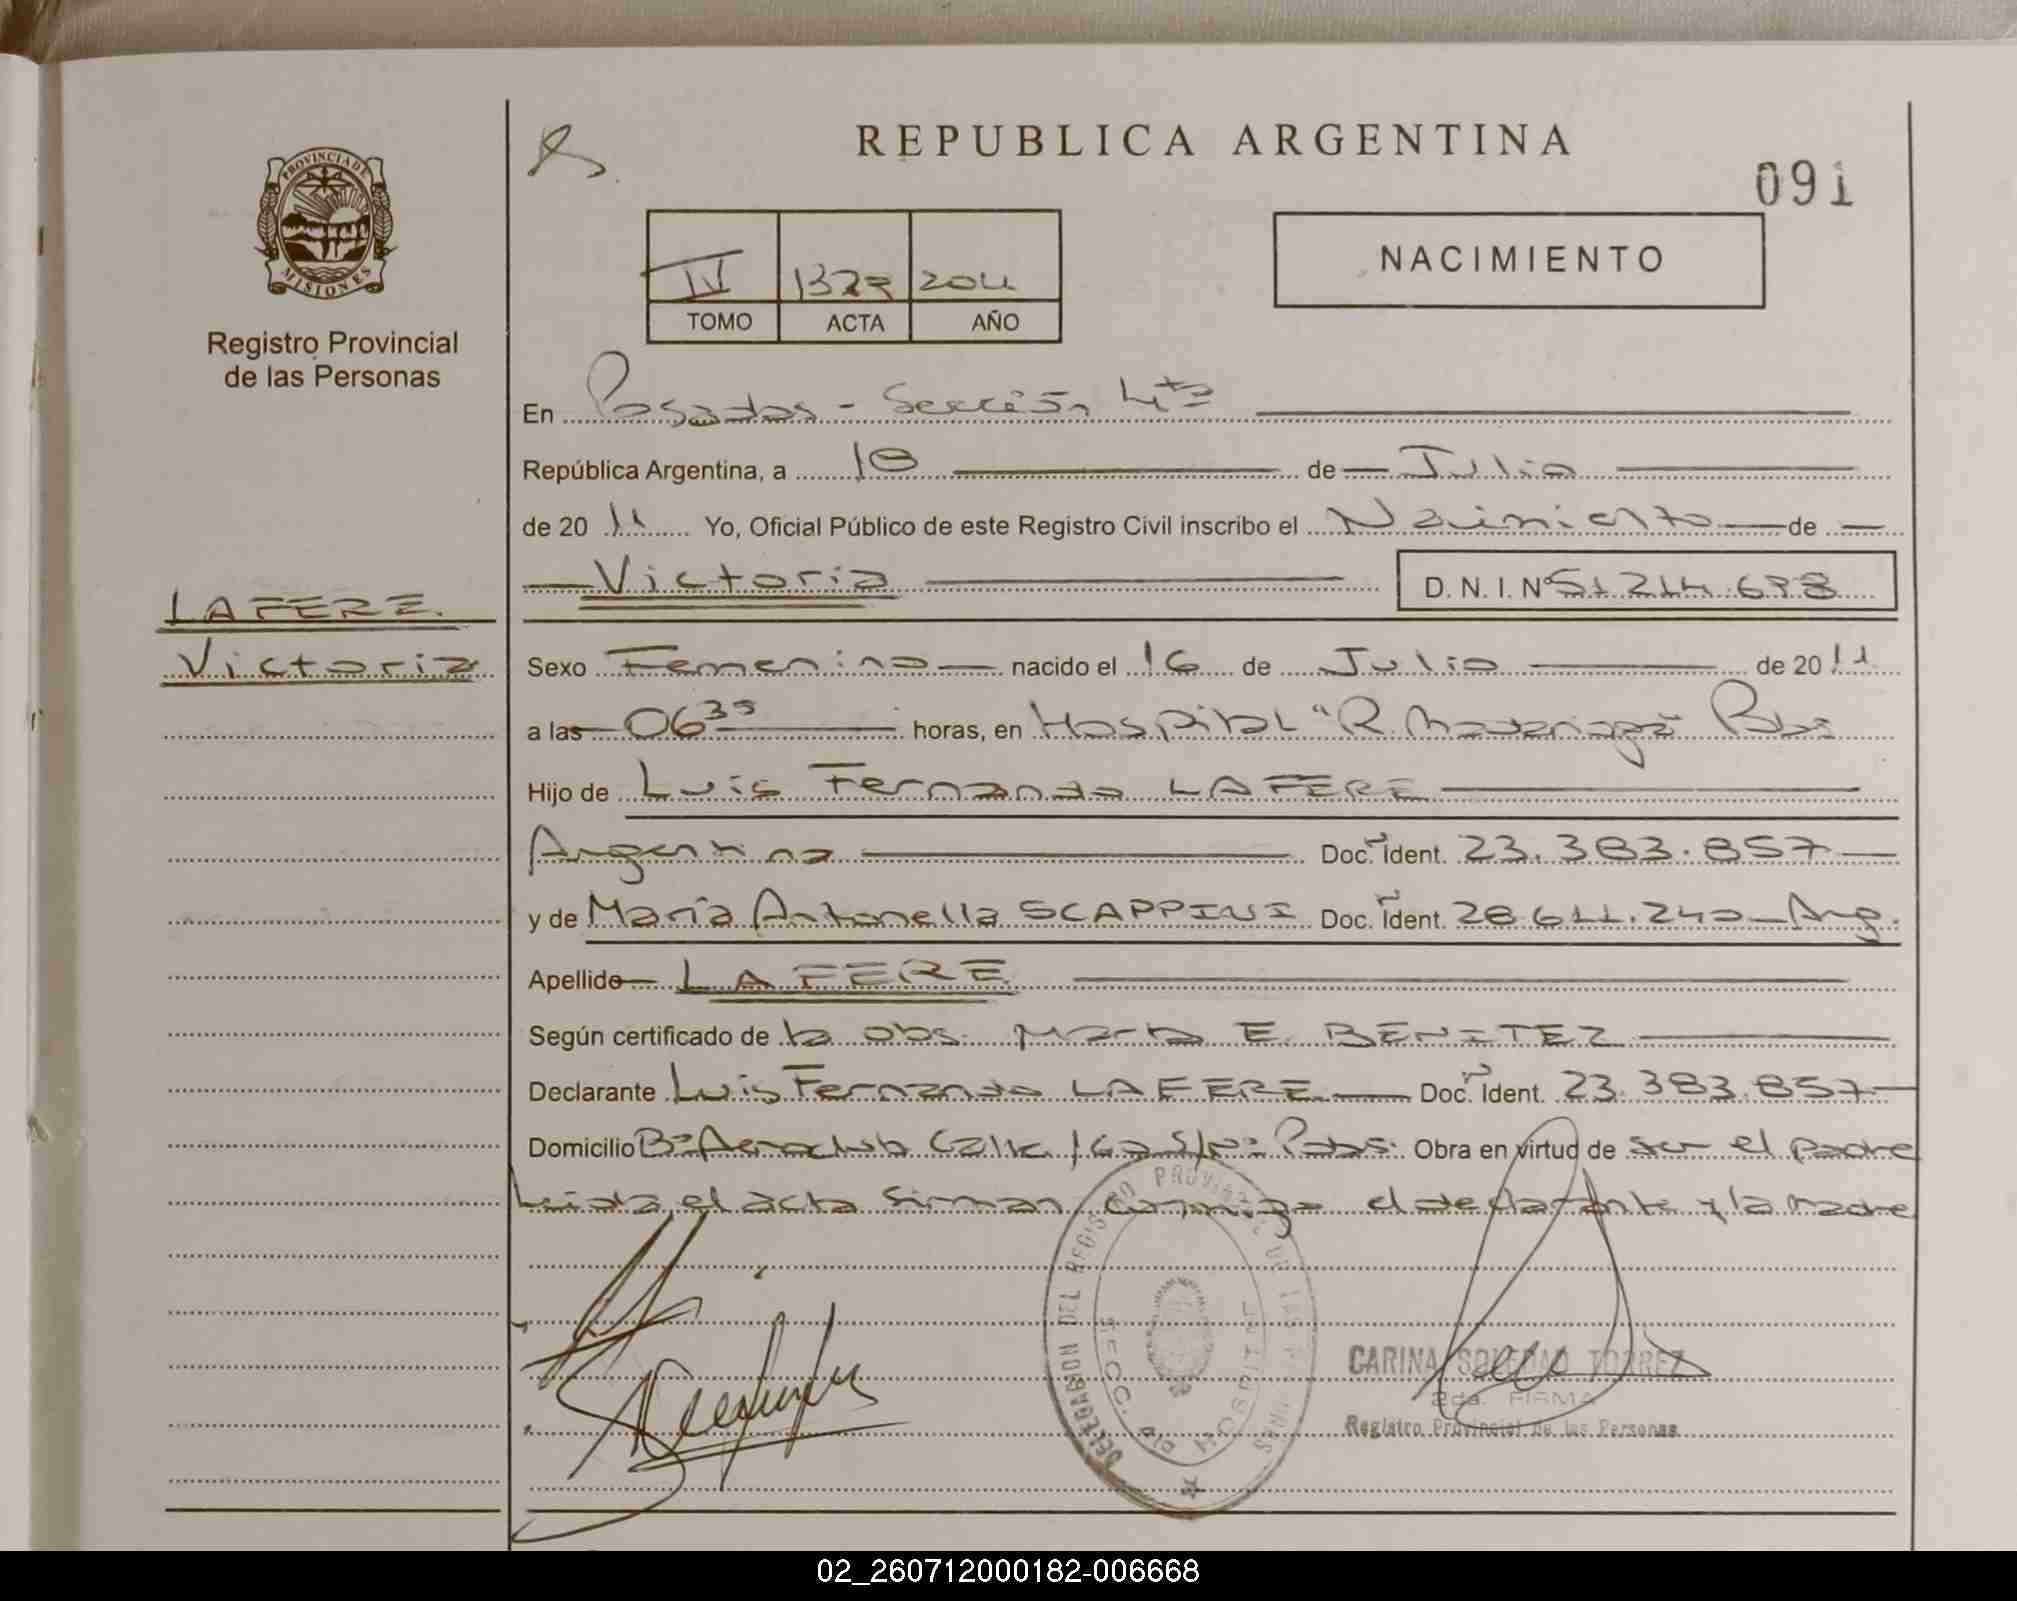 REPUBLICA ARGENTINA
091
PROVINCIA DE
MISIONES
Registro Provincial
de las Personas
IV 1373 2011
TOMO ACTA AÑO
NACIMIENTO
En Posadas - Sección 4ta
República Argentina, a 18 de Julio
de 20 11 Yo, Oficial Público de este Registro Civil inscribo el Nacimiento de
Victoria D.N.I. Nº 51 214.698
LAFERE
Victoria
Sexo Femenino nacido el 16 de Julio de 20 11
a las 06 35 horas, en Hospital "R. Madariaga" Pdas
Hijo de Luis Fernando LAFERE
Argentino Doc. Ident. 23.383.857
y de María Antonella SCAPPINI Doc. Ident. 28.611.240 Arg.
Apellido LAFERE
Según certificado de la obs. Marta E. BENITEZ
Declarante Luis Fernando LAFERE Doc. Ident. 23.383.857
Domicilio Bº Aeroclub Calle 160 S/Nº Pdas. Obra en virtud de ser el padre
Leida el acta firman conmigo el declarante y la madre
DELEGACION DEL REGISTRO PROVINCIAL DE LAS PERSONAS
SECC. 4ta HOSPITAL
CARINA SOLEDAD TORREZ
2da. FIRMA
Registro Provincial de las Personas
02_260712000182-006668